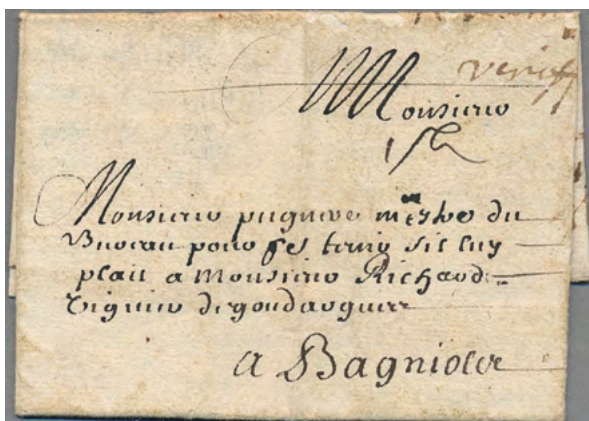 Monsieur
Monsieur pugnere mestre du
Bureau pour fes tenir sil luy
plait a Monsieur Richard
viguier de goudargues
a Bagniolet